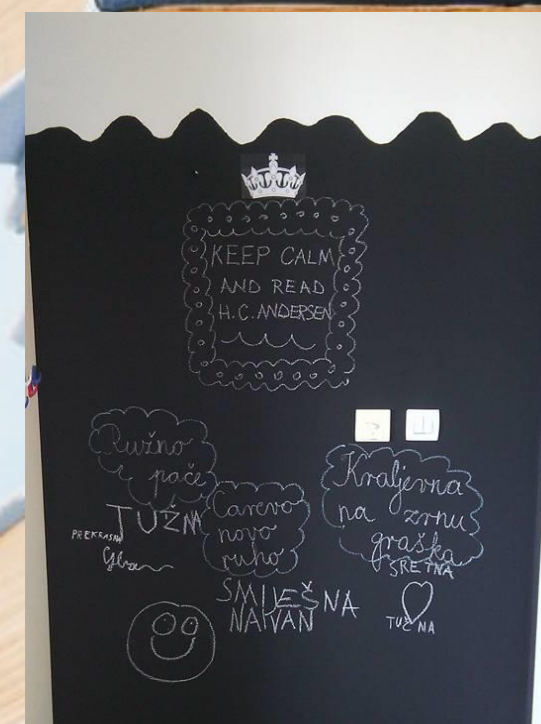 KEEP CALM
AND READ
H.C. ANDERSEN
Ružno
pače
TUŽNA
PREKRASNA
Carevo
novo
ruho
SMIJEŠNA
NAIVAN
Kraljevna
na zrnu
graška
SRETNA
TUŽNA